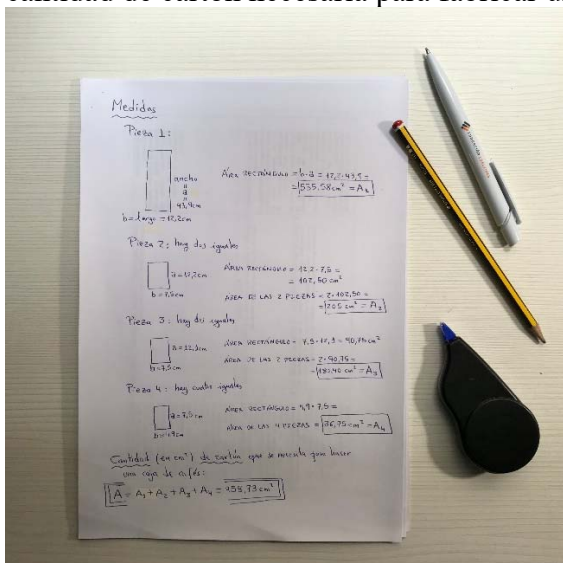 cantidad de cartón necesaria para fabricar
Medidas
Pieza 1:
ancho
=
a
=
43,9cm
ÁREA RECTÁNGULO = b·a = 12,2·43,9 =
= 535,58 cm² = A₁
b = largo = 12,2cm
Pieza 2: hay dos iguales
ÁREA RECTÁNGULO =
= 102,50 cm²
b = 7,5cm
ÁREA DE LAS 2 PIEZAS = 2·102,50 =
= 205 cm² = A₂
Pieza 3: hay dos iguales
ÁREA RECTÁNGULO = = 90,75 cm²
b = 7,5cm
ÁREA DE LAS 2 PIEZAS = 2·90,75 =
= 181,40 cm² = A₃
Pieza 4: hay cuatro iguales
a = 7,5cm
ÁREA RECTÁNGULO = 4,9·7,5 =
b = 4,9cm
ÁREA DE LAS 4 PIEZAS = 36,75 cm² = A₄
Cantidad (en cm²) de cartón que se necesita para hacer
una caja de cafés:
A = A₁ + A₂ + A₃ + A₄ = 958,73 cm²